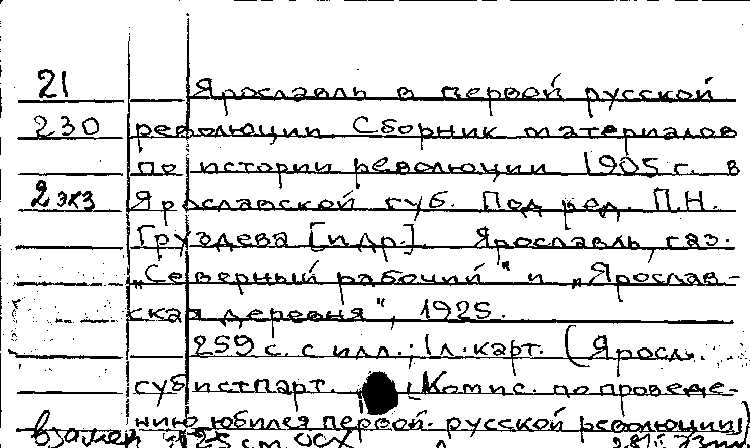 21 Ярославль в первой русской
230 революции. Сборник материалов
по истории революции 1905 г. в
2 экз Ярославской губ. Под ред. П.Н.
Груздева [и др.]. Ярославль, газ.
„Северный рабочий" и „Ярослав-
ская деревня", 1925.
259 с. с илл.; 1 л. карт. (Яросл.
губистпарт. Комис. по проведе-
нию юбилея первой русской революции)
взамен